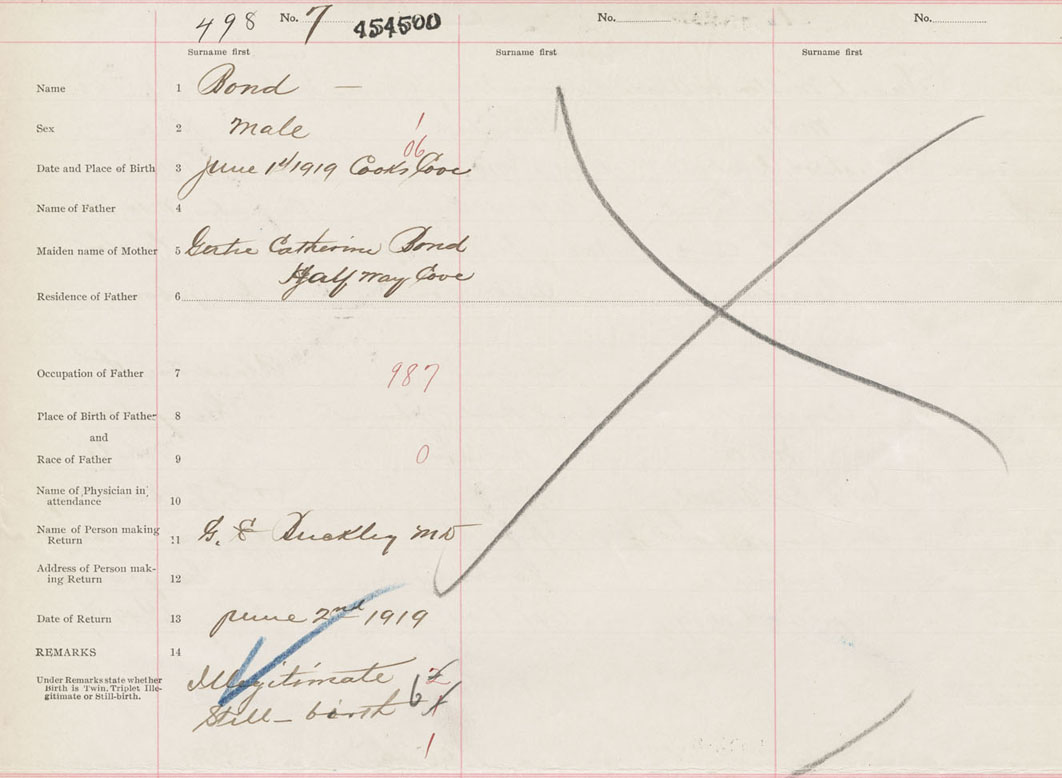 498 No. 7 454500 No. No.
Surname first Surname first Surname first
Name 1 Bond —
Sex 2 Male 1
06
Date and Place of Birth 3 June 1st/1919 Cooks Cove
Name of Father 4
Maiden name of Mother 5 Gertie Catherine Bond
Half Way Cove
Residence of Father 6
Occupation of Father 7 987
Place of Birth of Father 8
and
Race of Father 9 0
Name of Physician in
attendance 10
Name of Person making
Return 11 G. E Buckley MD
Address of Person mak-
ing Return 12
Date of Return 13 June 2nd 1919
REMARKS 14
Under Remarks state whether
Birth is Twin, Triplet Ille-
gitimate or Still-birth.
Illegitimate
Still-birth 6
1